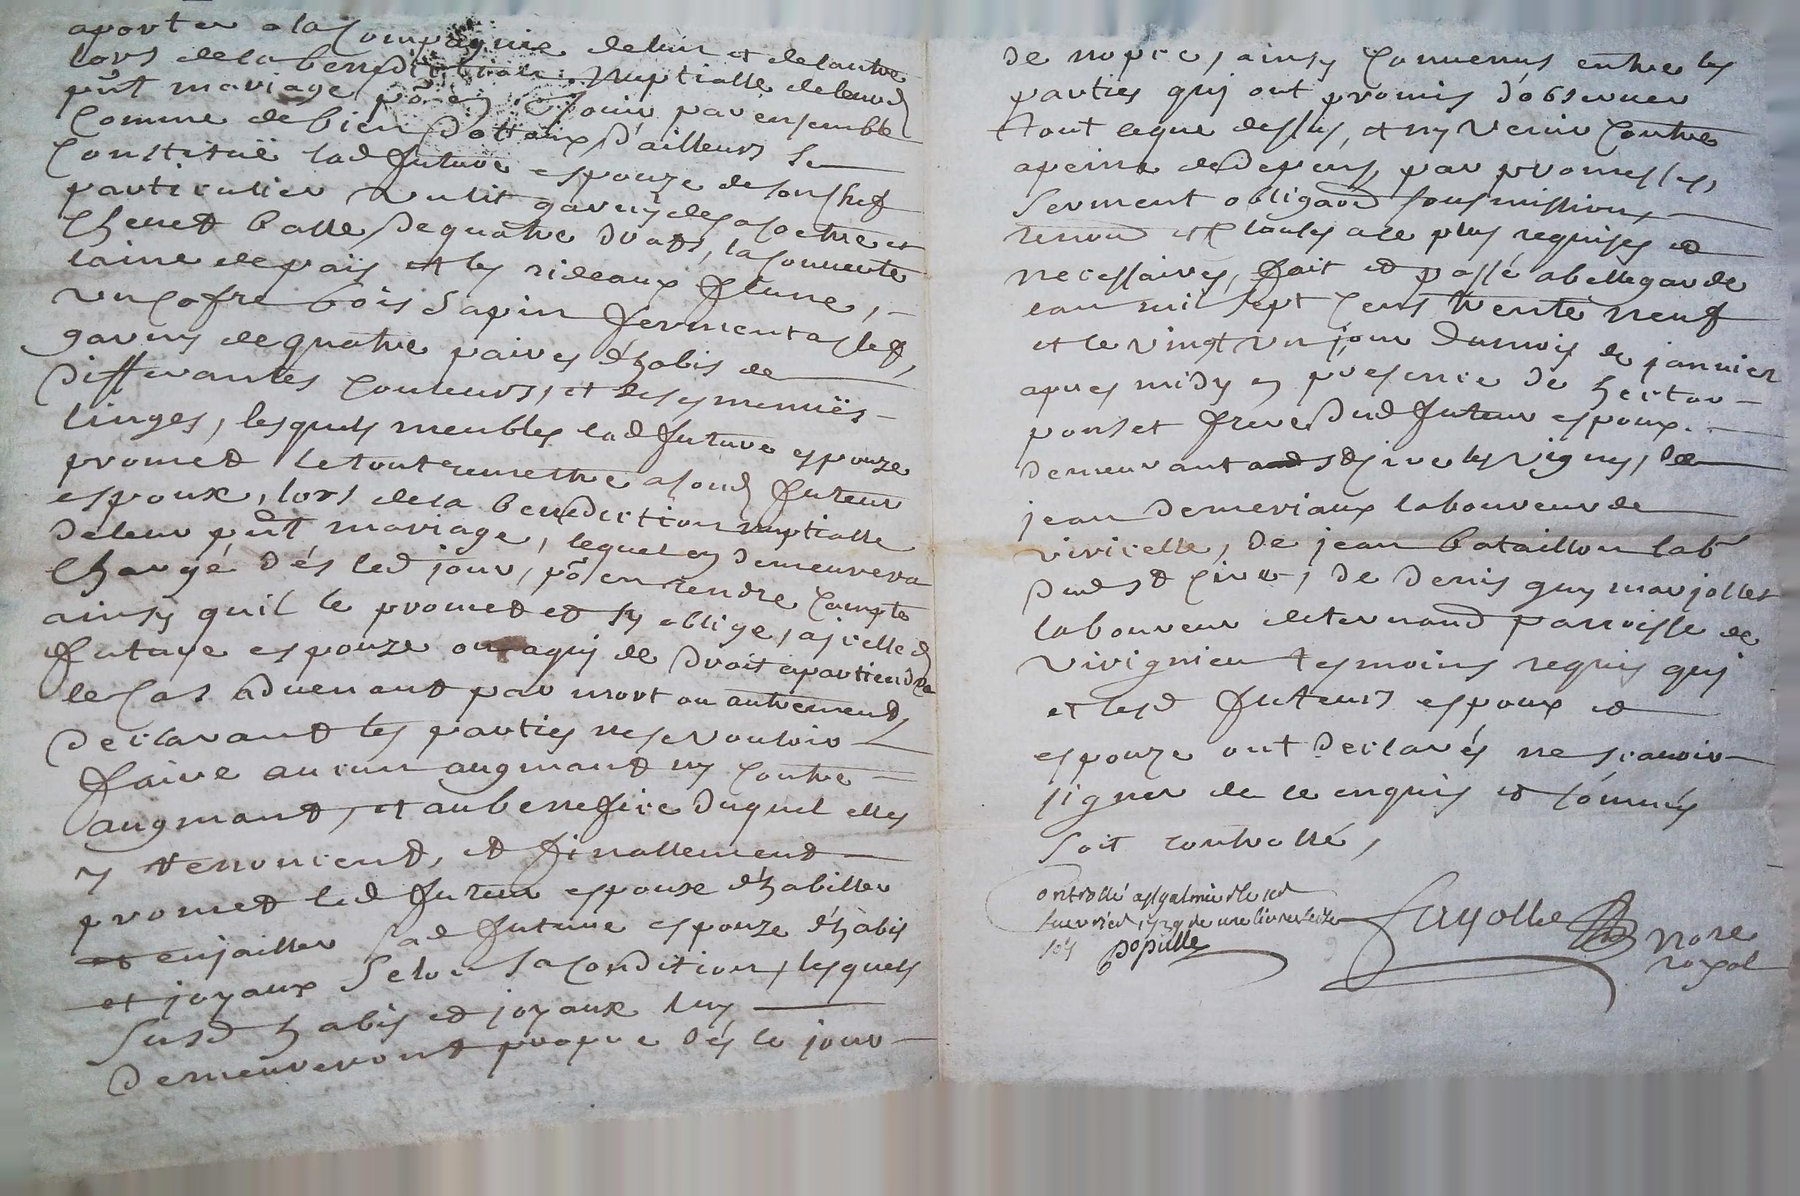 aporter a la Compagnie de lun et de lautre
lors de la benediction nuptialle de leurd
pnt mariage, po en Jouir par ensemble
Comme de bien dottaux, dailleurs se
Constitue lad future espouze de son chef
particulier un lit garny de sa
Chevet balle de quatre draps, la couverte
laine de païs et les rideaux
un Cofre bois sapin fermant a clef,
garny de quatre paires d'habis de
differantes couleurs, et ses menuës
linges, lesquels meubles lad future espouze
promet le tout remettre a sond futeur
espoux, lors de la benediction nuptialle
de leur pnt mariage, lequel en demeurera
Chargé dés led jour, po en rendre compte
ainsy quil le promet et sy oblige, a jcelled
future espouze ou a quy de droit apartiendra
le Cas advenant par mort ou autrement,
declarant les parties ne se vouloir
faire aucun augmant ny contre
augmant, et au benefice duquel elles
y renoncent, et finallement
promet led futeur espoux d'habiller
et enjailler lad future espouze d'habis
et joyaux selon sa condition, lesquels
susd habis et joyaux luy
demeureront propre dés le jour
de nopce, ainsy Convenus entre les
parties quj ont promis d'observer
tout ce que dessus, et ny venir Contre
a peine de depens, par promesses,
serment obligaon soumissions
renon et Clauses a ce plus requises et
necessaires, fait et passé a bellegarde
lan mil sept Cens trente neuf
et le vingt un jour du mois de janvier
apres midy en presence de hector
ponset frere dud futeur espoux
demeurant a st cire les vignes, de
jean demeriaux laboureur de
viricelle, de jean bataillon labr
dud st Cire, de denis guy marjollet
laboureur de ternand parroisse de
virignieu tesmoins requis quj
et lesd futeurs espoux et
espouze ont declarés ne scavoir
signer de ce enquis et sommés
soit controllé,
Controllé a st galmier le
fuevrier 1739 de une livre seize
sols populle
fayolle nore
royal